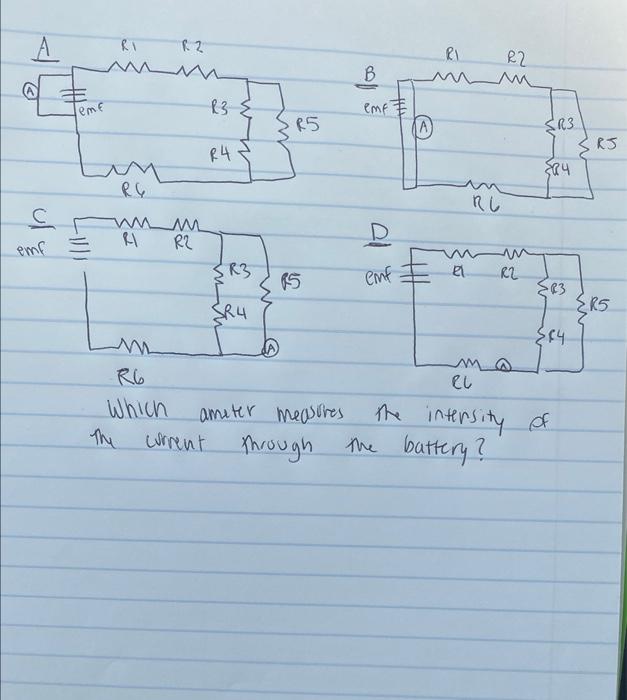 A
R1 R2
A
emf
R3
R5
R4
R6
B
R1 R2
emf
A
R3
R5
R4
R6
C
emf
R1 R2
R3
R5
R4
A
R6
D
emf
R1 R2
R3
R5
R4
A
R6
Which ameter measures the intensity of
the current through the battery?